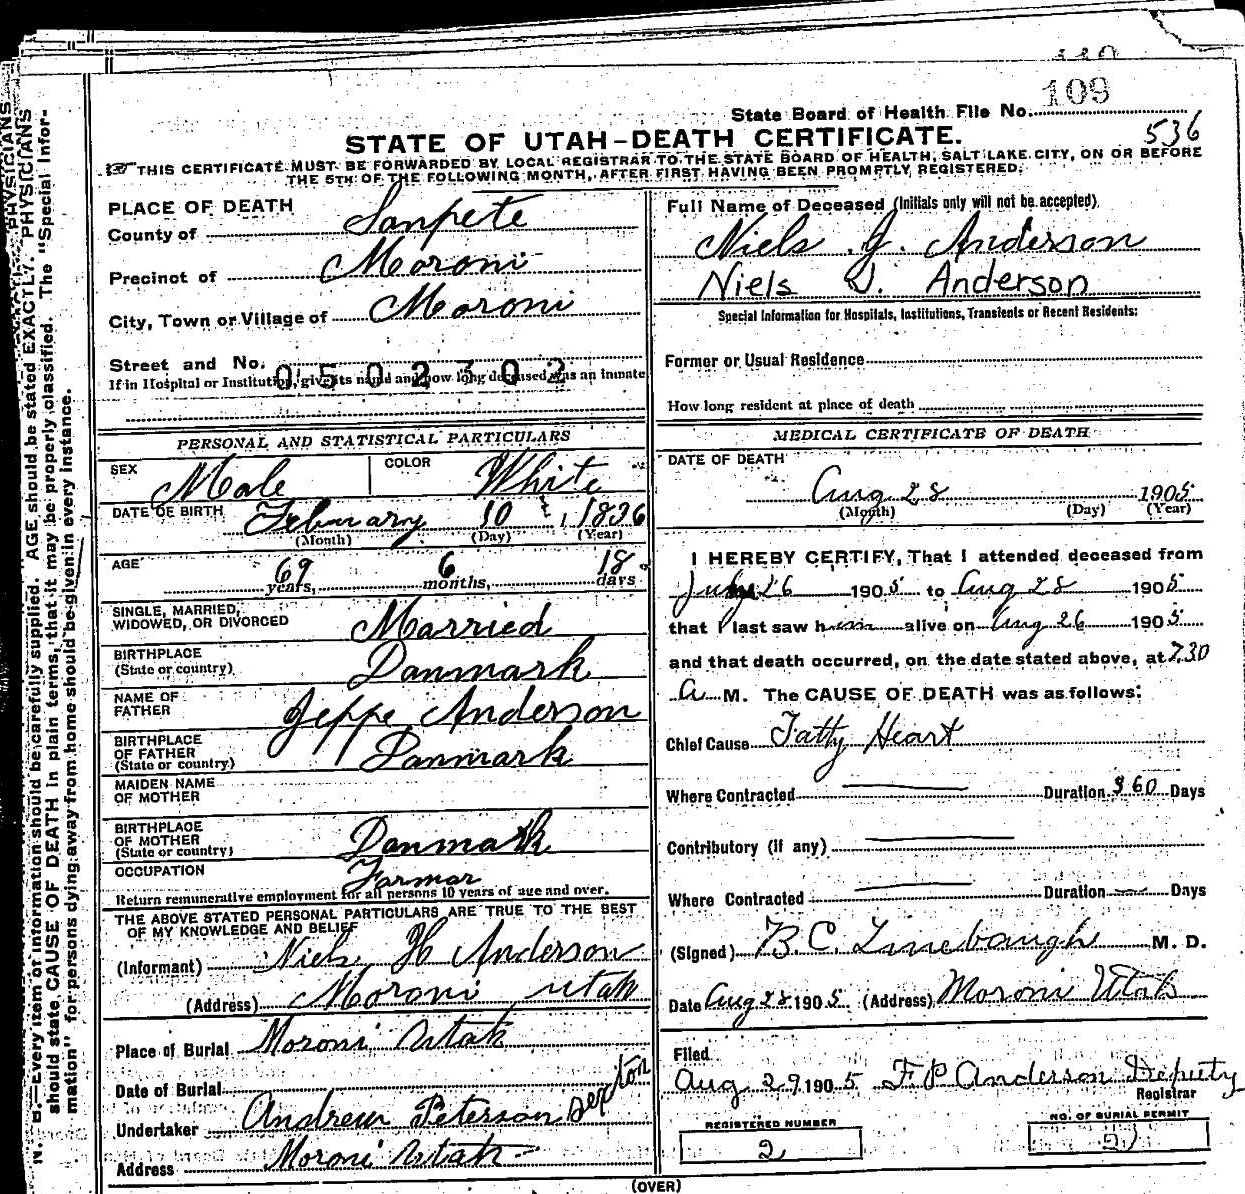 109
State Board of Health File No.
STATE OF UTAH-DEATH CERTIFICATE.
536
THIS CERTIFICATE MUST BE FORWARDED BY LOCAL REGISTRAR TO THE STATE BOARD OF HEALTH, SALT LAKE CITY, ON OR BEFORE
THE 5TH OF THE FOLLOWING MONTH, AFTER FIRST HAVING BEEN PROMPTLY REGISTERED.
PLACE OF DEATH
County of Sanpete
Precinct of Moroni
City, Town or Village of Moroni
Street and No.
0502302
If in Hospital or Institution, give its name and how long deceased was an inmate
PERSONAL AND STATISTICAL PARTICULARS
SEX Male COLOR White
DATE OF BIRTH February 10, 1836
(Month) (Day) (Year)
AGE 69 years, 6 months, 18 days.
SINGLE, MARRIED,
WIDOWED, OR DIVORCED Married
BIRTHPLACE
(State or country) Danmark
NAME OF
FATHER Jeppe Anderson
BIRTHPLACE
OF FATHER
(State or country) Danmark
MAIDEN NAME
OF MOTHER
BIRTHPLACE
OF MOTHER
(State or country) Danmark
OCCUPATION Farmar
Return remunerative employment for all persons 10 years of age and over.
THE ABOVE STATED PERSONAL PARTICULARS ARE TRUE TO THE BEST
OF MY KNOWLEDGE AND BELIEF
(Informant) Niels H Anderson
(Address) Moroni Utah
Place of Burial Moroni Utah
Date of Burial
Undertaker Andrew Peterson Sexton
Address Moroni Utah
Full Name of Deceased (Initials only will not be accepted)
Niels J. Anderson
Niels J. Anderson
Special Information for Hospitals, Institutions, Transients or Recent Residents:
Former or Usual Residence
How long resident at place of death
MEDICAL CERTIFICATE OF DEATH
DATE OF DEATH
Aug 28 1905
(Month) (Day) (Year)
I HEREBY CERTIFY, That I attended deceased from
July 26 1905 to Aug 28 1905
that I last saw him alive on Aug 26 1905
and that death occurred, on the date stated above, at 7.30
a M. The CAUSE OF DEATH was as follows:
Chief Cause Fatty Heart
Where Contracted Duration 360 Days
Contributory (if any)
Where Contracted Duration Days
(Signed) B.C. Linebaugh M. D.
Date Aug 28 1905 (Address) Moroni Utah
Filed
Aug 29 1905 F P Anderson Deputy
Registrar
REGISTERED NUMBER
2
NO. OF BURIAL PERMIT
2
(OVER)
N. B.—Every item of information should be carefully supplied. AGE should be stated EXACTLY. PHYSICIANS
should state CAUSE OF DEATH in plain terms, that it may be properly classified. The "Special Infor-
mation" for persons dying away from home should be given in every instance.